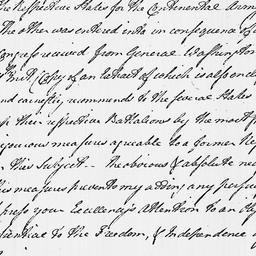 the respective States for the Continental Army
The other was entered into in consequence of
Congress received from General Washington
of an Extract of which is also encl
and earnestly recommends to the several States
up their respective Battalions by the most
vigorous measures agreeable to a former Re
this Subject – the obvious & absolute nec
this measure prevents my adding any persu
press your Excellency's Attention to an
sential to the Freedom, & Independence